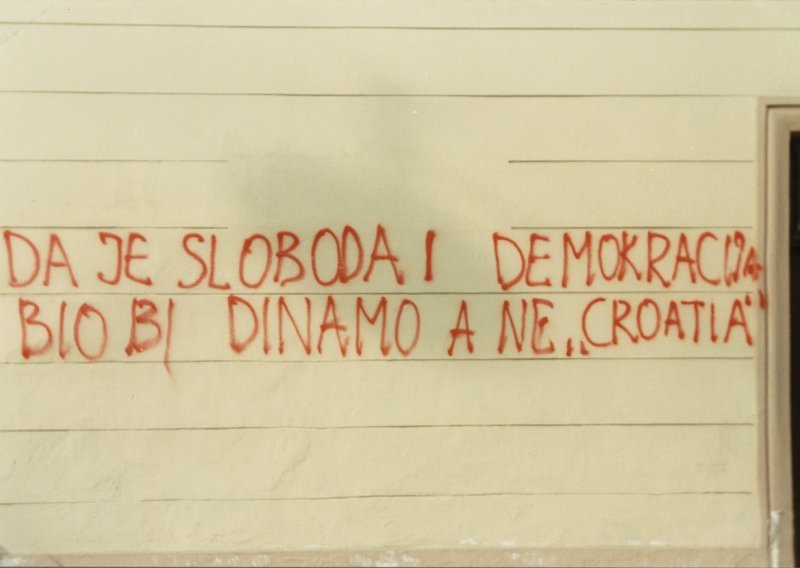 DA JE SLOBODA I DEMOKRACIJA
BIO BI DINAMO A NE „CROATIA“